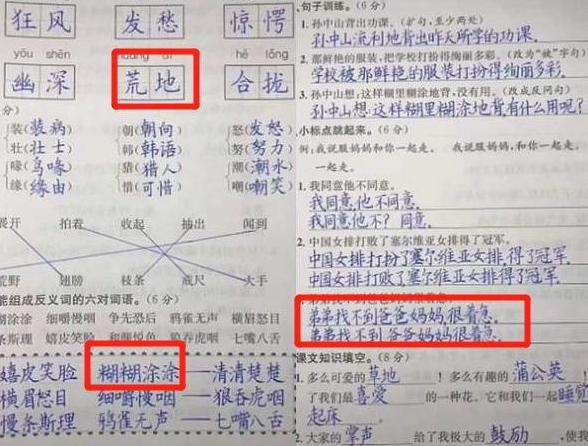 狂风 发愁 惊愕
yōu shēn huāng dì hé lǒng
幽深 荒地 合拢
分)
装(装病) 朝(朝向) 怒(发怒)
壮(壮士) 韩(韩语) 努(努力)
喙(鸟喙) 猎(猎人) 潮(潮水)
缘(缘由) 惜(可惜) 嘲(嘲笑)
展开 拍着 收起 抽出 闻到
荒野 翅膀 枝条 戒尺 大手
能组成反义词的六对词语。(6分)
糊涂涂 细嚼慢咽 争先恐后 鸦雀无声 横眉怒目
条斯理 嬉皮笑脸 和颜悦色 狼吞虎咽 七嘴八舌
嬉皮笑脸 糊糊涂涂——清清楚楚
横眉怒目 细嚼慢咽——狼吞虎咽
慢条斯理 鸦雀无声——七嘴八舌
句子训练。(6分)
1. 孙中山背出功课。(扩句,至少两处)
孙中山流利地背出昨天所学的功课.
2. 那鲜艳的服装,把学校打扮得绚丽多彩。(改为“被”字句)
学校被那鲜艳的服装打扮得绚丽多彩.
3. 孙中山想:这样糊里糊涂地背,没有用。(改成反问句)
孙中山想:这样糊里糊涂地背有什么用呢?
小标点跳起来。(6分)
例:我说服妈妈和你一起走。 我说服妈妈,和你一起走。
一起走。
1. 我同意他不同意。
我同意他不同意.
我同意他不?同意.
2. 中国女排打败了塞尔维亚女排得了冠军。
中国女排打扮了塞尔维亚女排,得了冠军
中国女排打败了塞尔维亚,女排得了冠军.
弟弟找不到爸爸妈妈很着急.
弟弟找不到爸爸妈妈很着急.
课文知识填空。(8分)
1. 多么可爱的草地!多么有趣的蒲公英!
了我们最喜爱的一种花。它和我们一起睡觉
起床。
2. 大家的掌声 给了我极大的鼓励,使我